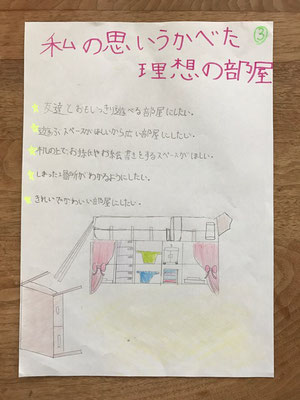 私の思いうかべた
③
理想の部屋
友達とおもいっきり遊べる部屋にしたい。
遊ぶスペースがほしいから広い部屋にしたい。
机の上でお絵かきやお絵書きをするスペースがほしい。
しまった場所がわかるようにしたい。
きれいでかわいい部屋にしたい。